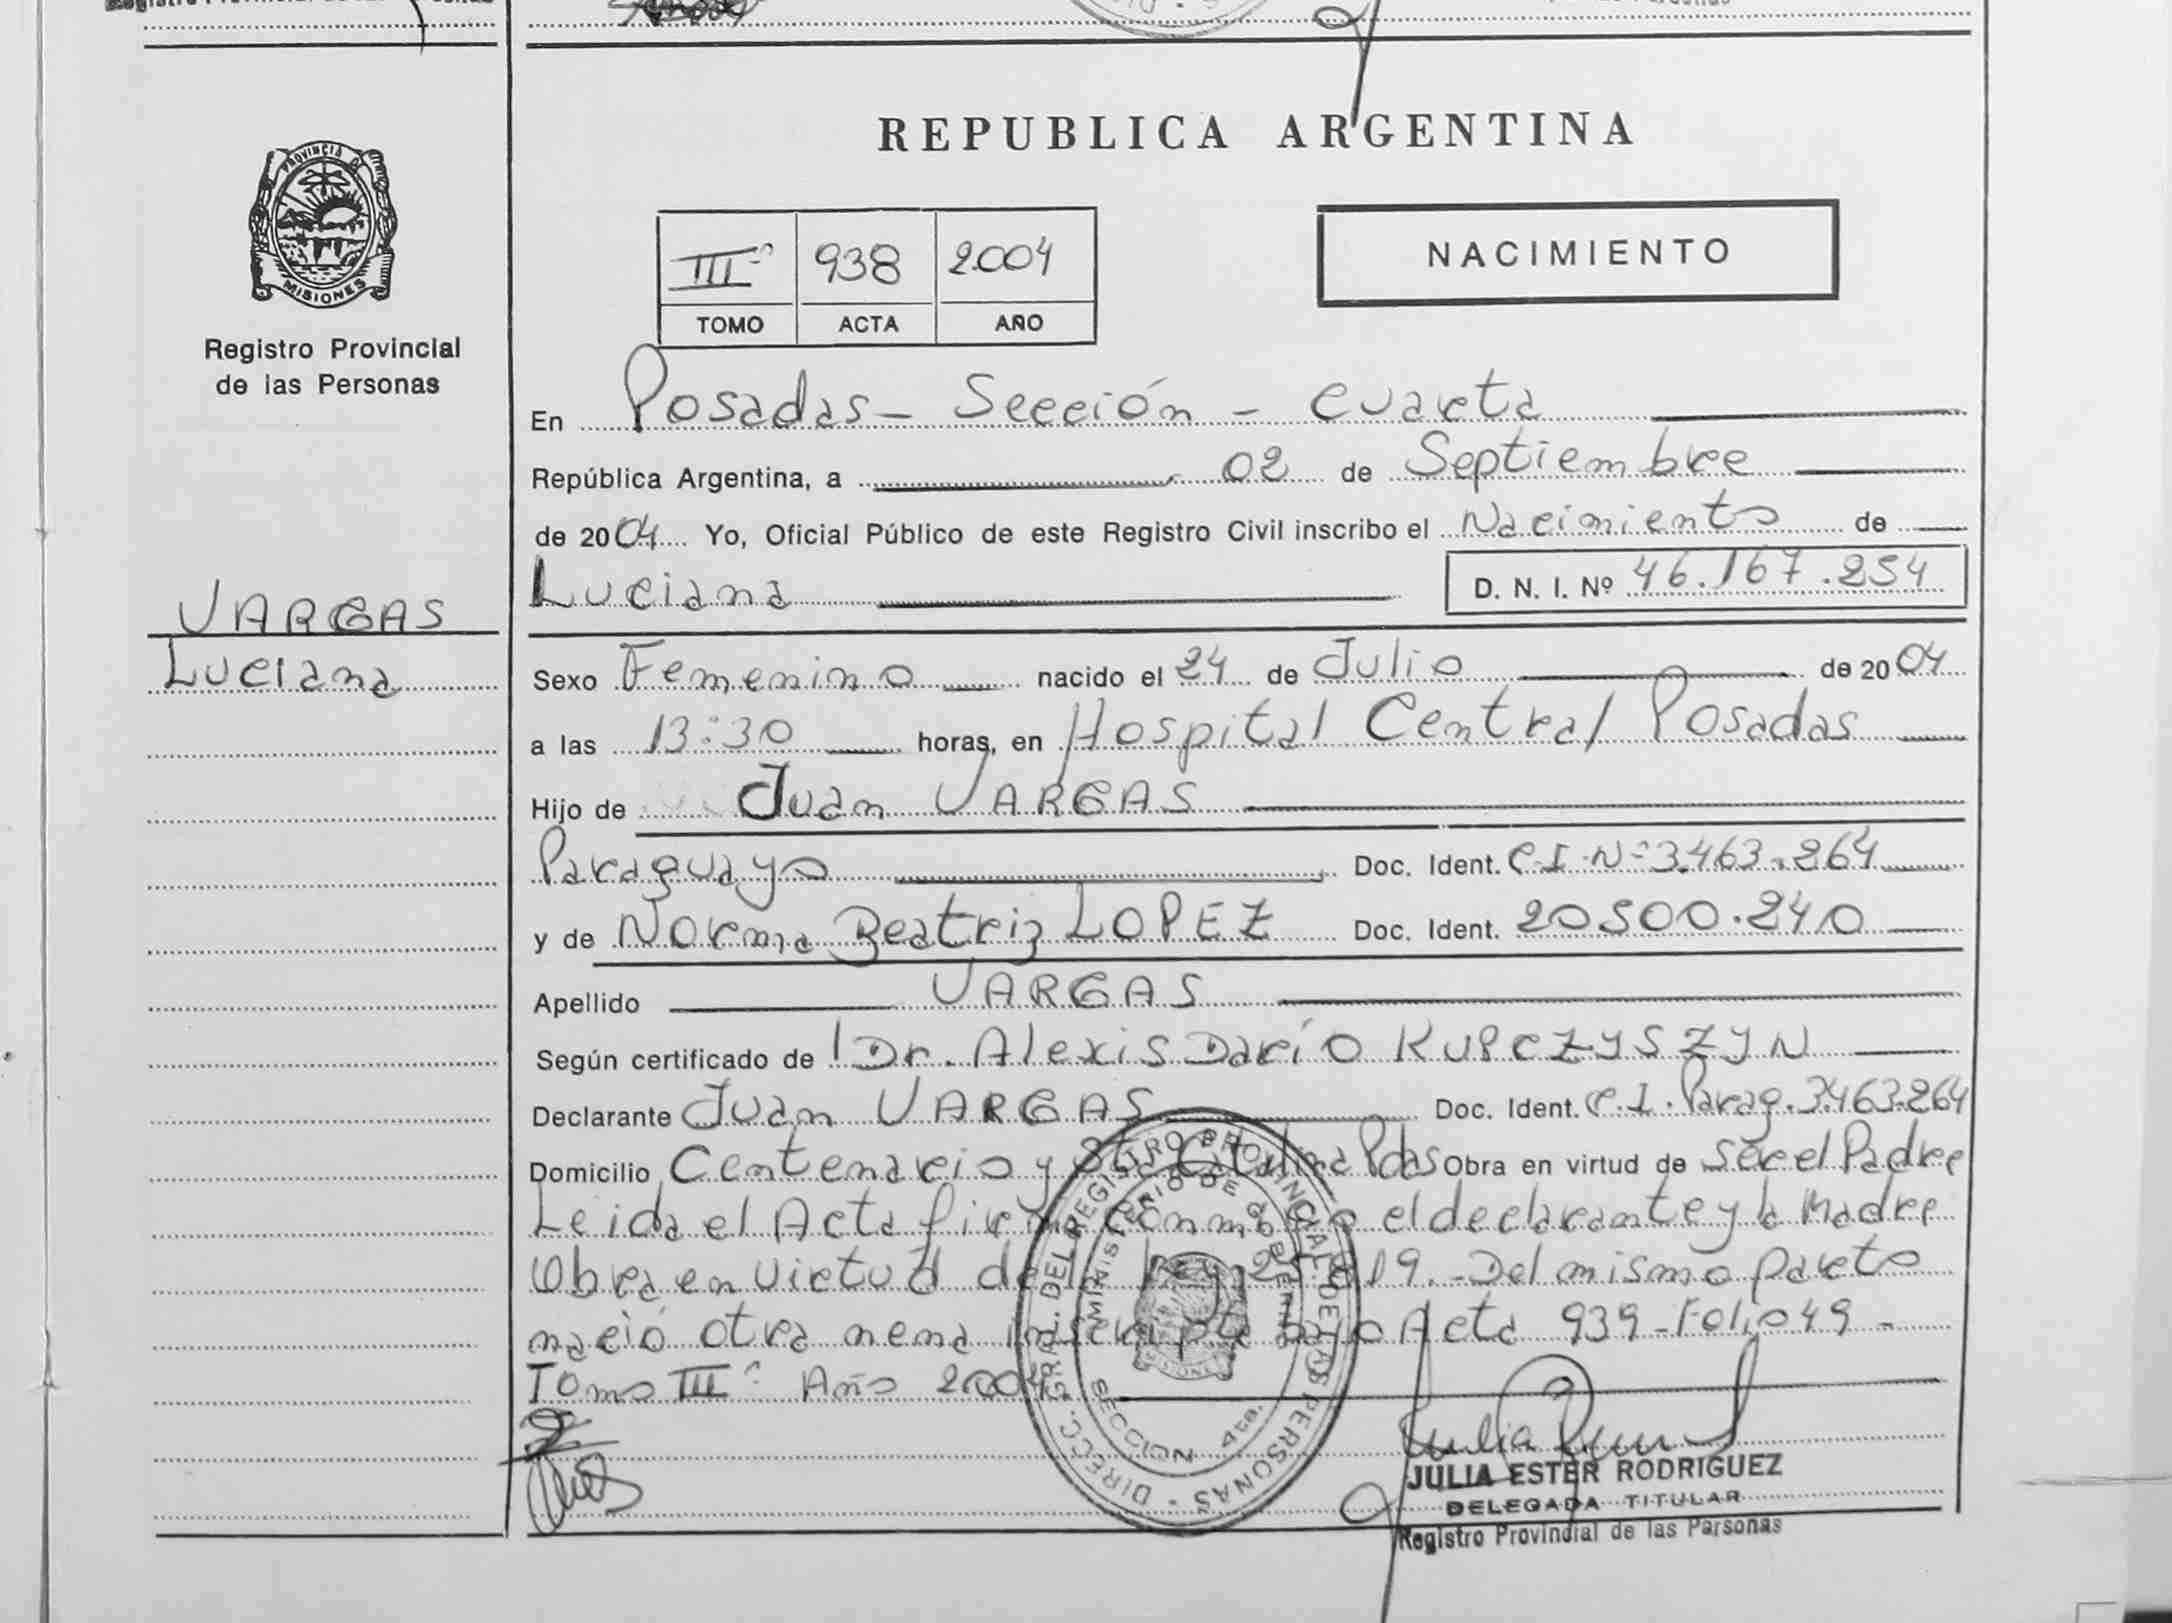 REPUBLICA ARGENTINA
PROVINCIA DE
MISIONES
Registro Provincial
de las Personas
NACIMIENTO
IIIº 938 2004
TOMO ACTA AÑO
En Posadas - Sección - Cuarta
República Argentina, a 02 de Septiembre
de 2004 Yo, Oficial Público de este Registro Civil inscribo el Nacimiento de
Luciana D. N. I. Nº 46.167.254
VARGAS
Luciana
Sexo Femenino nacido el 24 de Julio de 2004
a las 13:30 horas, en Hospital Central Posadas
Hijo de Juan VARGAS
Paraguayo Doc. Ident. C.I.Nº3.463.264
y de Norma Beatriz LOPEZ Doc. Ident. 20500.240
Apellido VARGAS
Según certificado de Dr. Alexis Darío KUPCZYSZYN
Declarante Juan VARGAS Doc. Ident. C.I. Parag. 3.463.264
Domicilio Centenario y Sta Catalina Pdas Obra en virtud de ser el Padre
Leida el Acta firman conmigo el declarante y la Madre
Obra en virtud de la Ley 25.819.- Del mismo parto
nació otra nena inscripta bajo Acta 939 - Folio 49 -
Tomo IIIº Año 2004
DIRECC. GRAL. DEL REGISTRO PROVINCIAL DE LAS PERSONAS
MINISTERIO DE GOBIERNO
SECCION 4ta.
MISIONES
JULIA ESTER RODRIGUEZ
DELEGADA TITULAR
Registro Provincial de las Personas